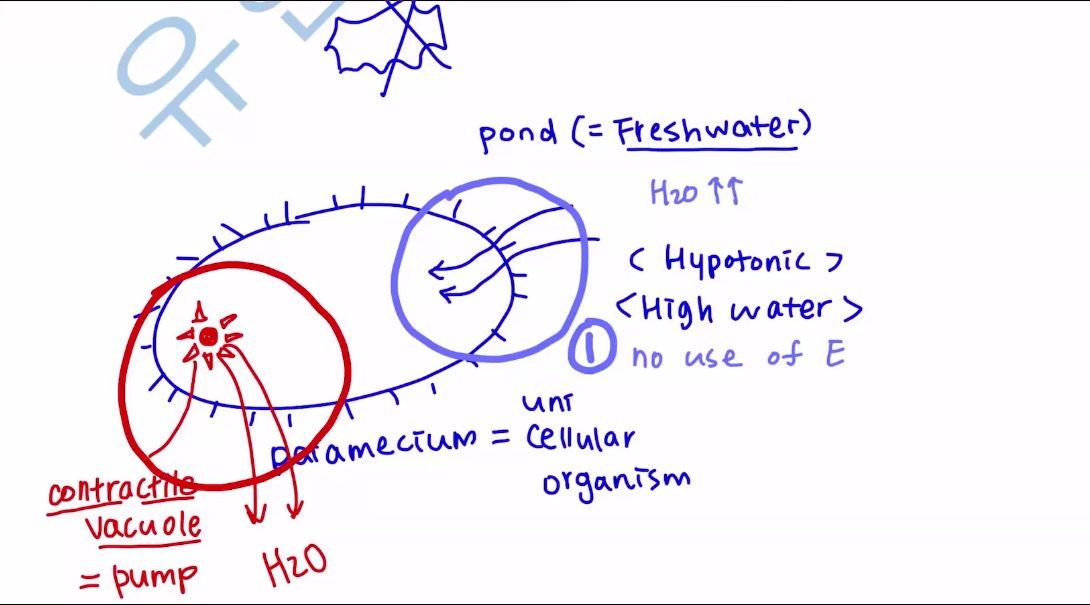 pond (= Freshwater)
H2O ↑↑
< Hypotonic >
<High water>
① no use of E
paramecium = uni
cellular
organism
contractile
vacuole
= pump
H2O